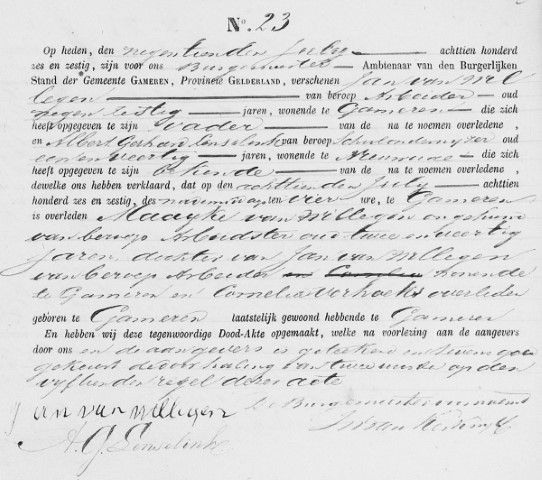 No. 23
Op heden, den negentienden July achttien honderd
zes en zestig, zijn voor ons Burgemeester Ambtenaar van den Burgerlijken
Stand der Gemeente GAMEREN, Provincie GELDERLAND, verschenen Jan van Wil
legen van beroep Arbeider oud
negen zestig jaren, wonende te Gameren die zich
heeft opgegeven te zijn Vader van de na te noemen overledene,
en Albert Gerhard van beroep Schoolonderwyzer oud
een en veertig jaren, wonende te die zich
heeft opgegeven te zijn bekende van de na te noemen overledene,
dewelke ons hebben verklaard, dat op den achttienden July achttien
honderd zes en zestig, des namiddags ten vier ure, te Gameren
is overleden Maayke van Willegen ongehuwd
van beroep Arbeidster oud twee en veertig
Jaren, dochter van Jan van Willegen
van beroep Arbeider en Cornelia wonende
te Gameren en Cornelia Verhoeks overleden
geboren te Gameren laatstelijk gewoond hebbende te Gameren
En hebben wij deze tegenwoordige Dood-Akte opgemaakt, welke na voorlezing aan de aangevers
door ons en de aangevers is geteekend en tevens goed
gekeurd de doorhaling van twee woorden op den
vyftienden regel dezer acte
Jan van Willegen de Burgemeester voornoemd
A. G.